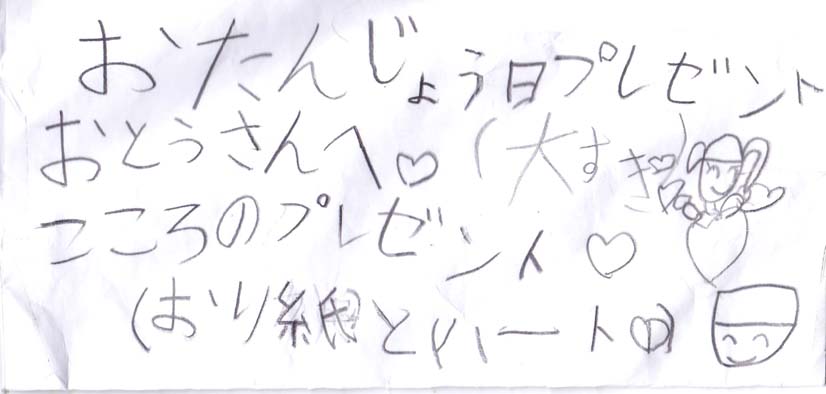 おたんじょう日プレゼント
おとうさんへ♡(大すき♡)
こころのプレゼント♡
(おり紙とハート♡)